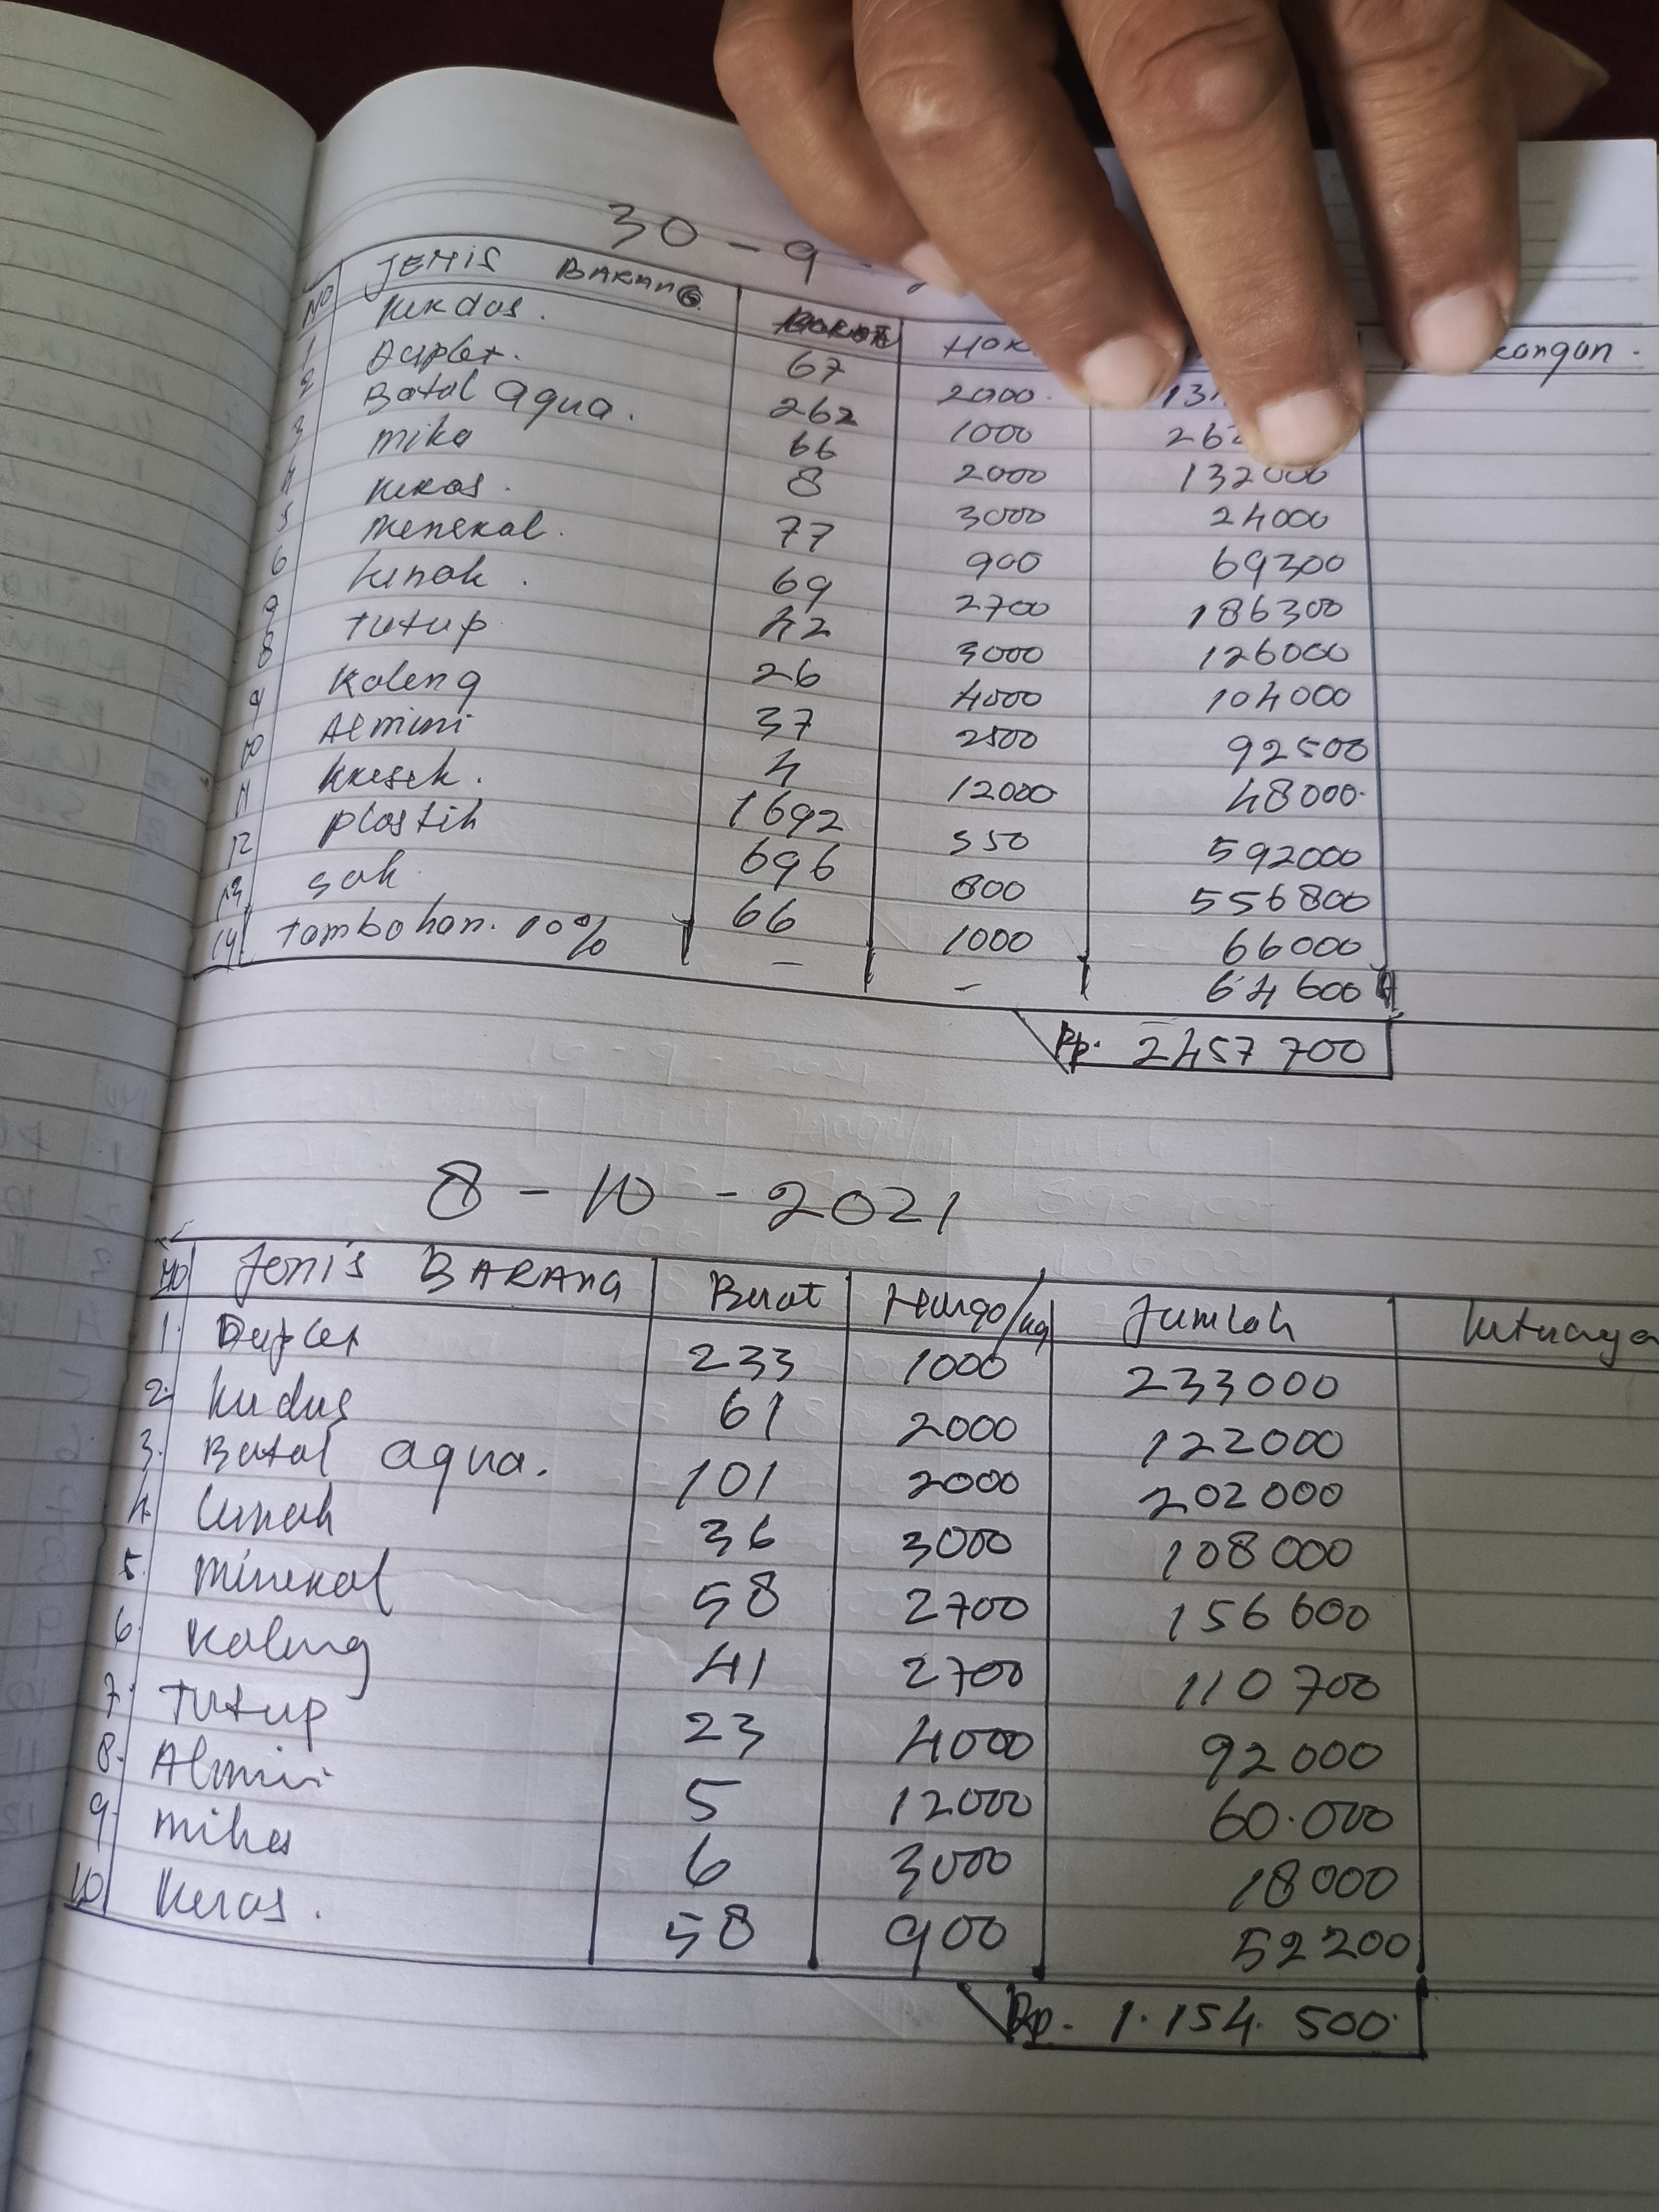 30 - 9
NO JENIS BARANG BERAT HAR kangan.
1 Kerdos. 67 2000. 13
2 Dupler. 262 1000 262
3 Botol aqua. 66 2000 132000
4 mika 8 3000 24000
5 Keras. 77 900 69300
6 Meneral. 69 2700 186300
lunak. 42 3000 126000
8 Tutup 26 4000 104000
9 Kaleng 37 2500 92500
10 Almini 4 12000 48000.
11 Kresek. 1692 350 592000
12 plastik 696 800 556800
13 sak 66 1000 66000
14 tambahan. 10% - - 64600
Rp. 2457 700
8 - 10 - 2021
NO Jenis BARANG Berat Harga/kg Jumlah
1. Dupler 233 1000 233000
2. Kerdus 61 2000 122000
3. Botol aqua. 101 2000 202000
4. Lunak 36 3000 108000
5. Mineral 58 2700 156600
6. Kaleng 41 2700 110700
7. Tutup 23 4000 92000
8. Almini 5 12000 60.000
9. Mika 6 3000 18000
10 Keras. 58 900 52200
Rp. 1.154.500.